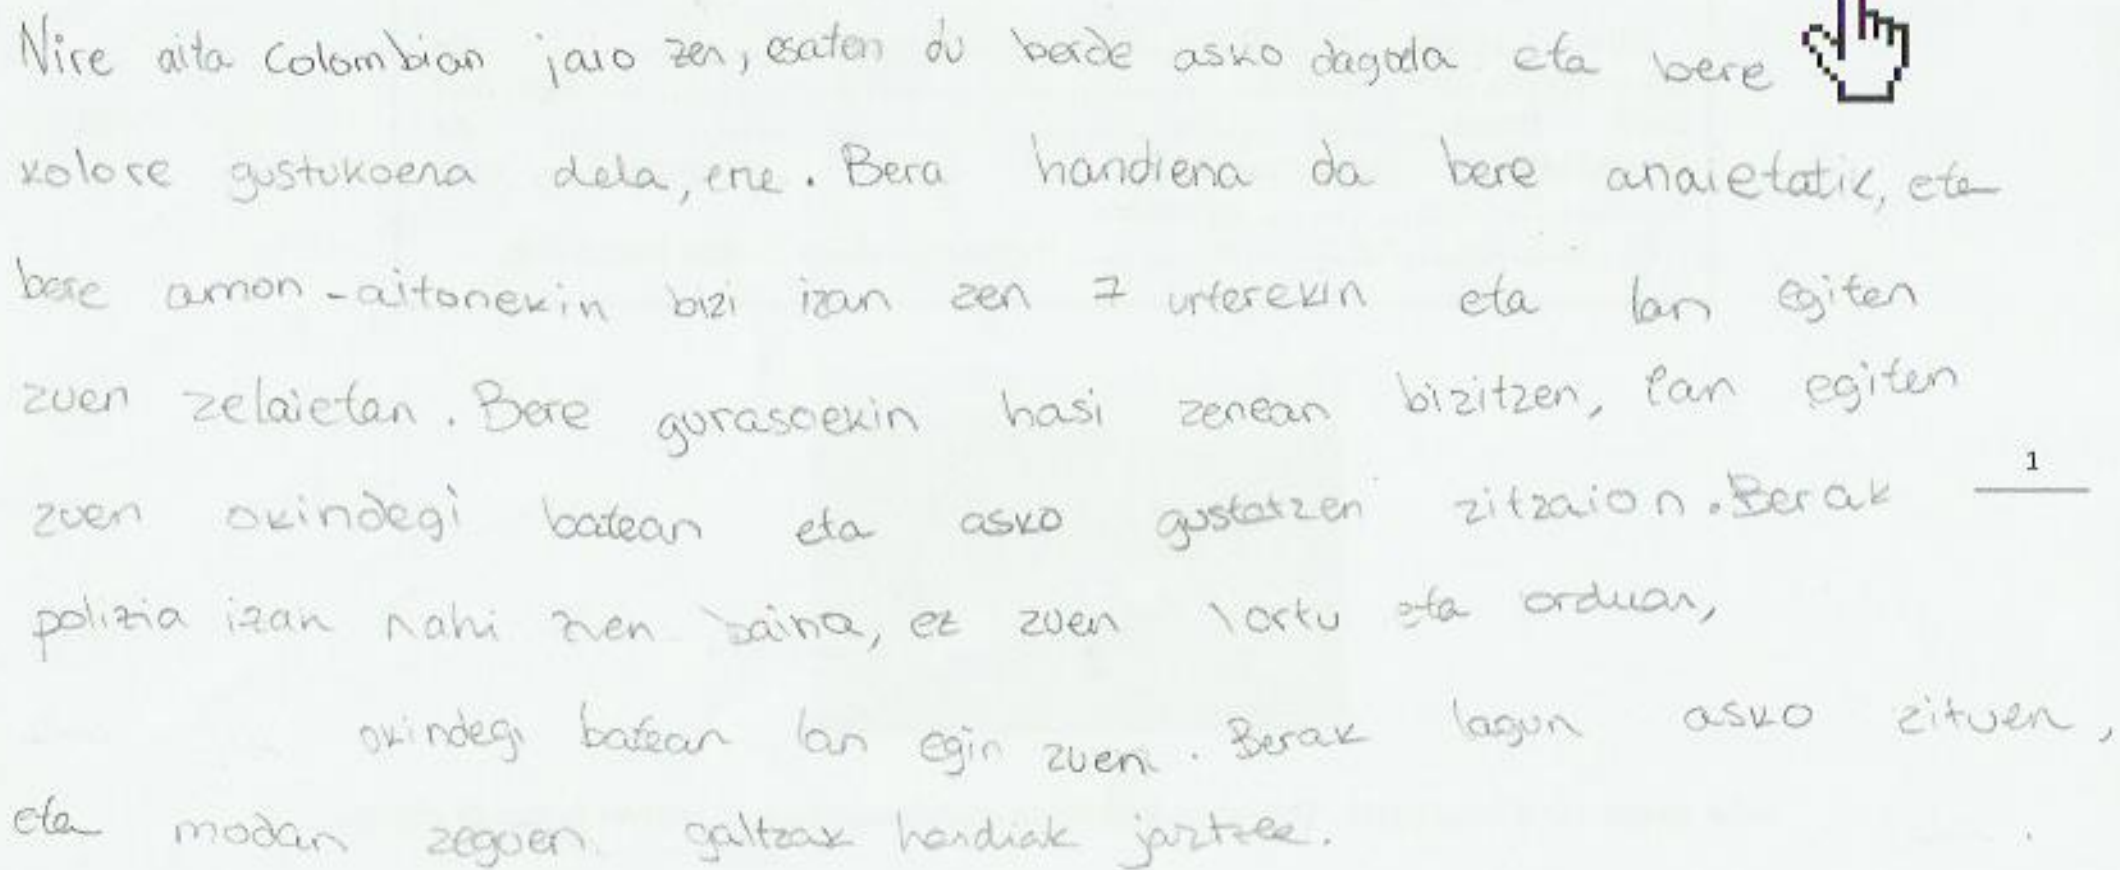 Nire aita Colombian jaio zen, esaten du berde asko dagoela eta bere
kolore gustukoena dela, ere. Bera handiena da bere anaietatik, eta
bere amon-aitonekin bizi izan zen 7 urterekin eta lan egiten
zuen zelaietan. Bere gurasoekin hasi zenean bizitzen, lan egiten
zuen okindegi batean eta asko gustatzen zitzaion. Berak
1
polizia izan nahi zuen baina, ez zuen lortu eta orduan,
okindegi batean lan egin zuen. Berak lagun asko zituen,
eta modan zegoen galtzak handiak jartzea.